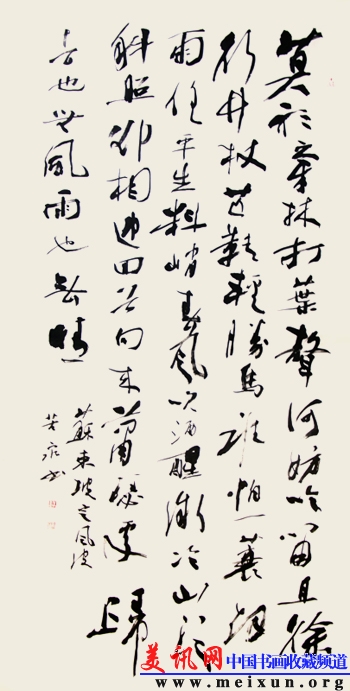 莫听穿林打葉聲何妨吟嘯且徐
行竹杖芒鞋輕勝馬誰怕一蓑烟
雨任平生料峭春風吹酒醒微冷山头
斜照却相迎回首向来蕭瑟處歸
去也無風雨也無晴
蘇東坡定风波
书
美讯网 中国书画收藏频道
www.meixun.org